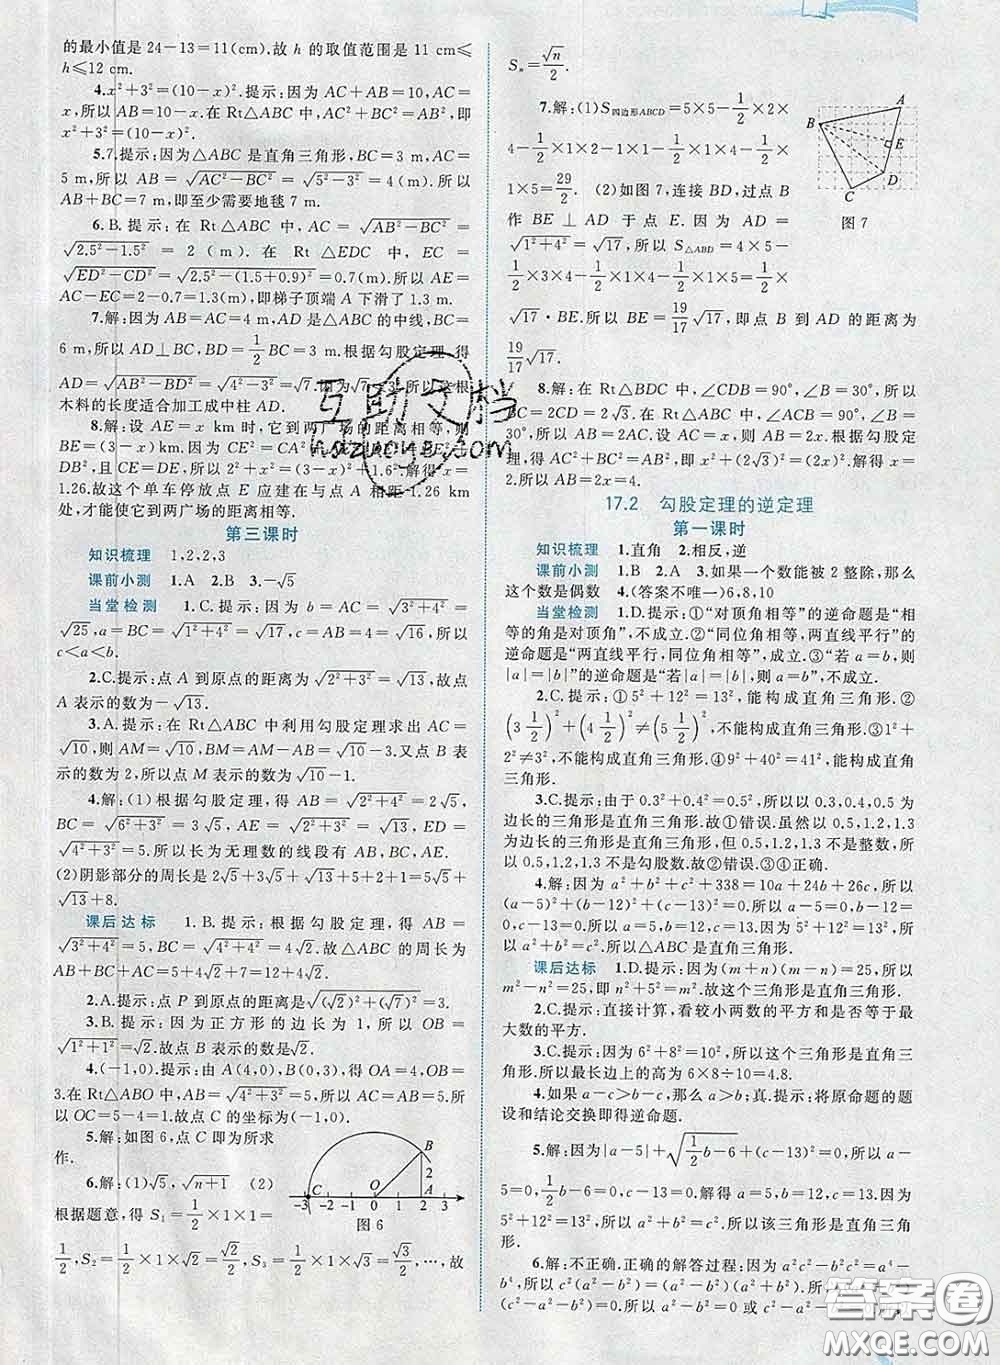 的最小值是 24－13＝11(cm).故 h 的取值范围是 11 cm≤
h≤12 cm.
4.x²＋3²＝(10－x)².提示:因为 AC＋AB＝10,AC＝
x,所以 AB＝10－x.在 Rt△ABC 中,AC²＋BC²＝AB²,即
x²＋3²＝(10－x)².
5.7.提示:因为△ABC 是直角三角形,BC＝3 m,AC＝
5 m,所以 AB＝√(AC²－BC²)＝√(5²－3²)＝4(m).所以
AB＋BC＝7 m,即至少需要地毯 7 m.
6.B.提示:在 Rt△ABC 中,AC＝√(AB²－BC²)＝
√(2.5²－1.5²)＝2 (m).在 Rt△EDC 中,EC＝
√(ED²－CD²)＝√(2.5²－(1.5＋0.9)²)＝0.7(m).所以 AE＝
AC－EC＝2－0.7＝1.3(m),即梯子顶端 A 下滑了 1.3 m.
7.解:因为 AB＝AC＝4 m,AD 是△ABC 的中线,BC＝
6 m,所以 AD⊥BC,BD＝1/2 BC＝3 m.根据勾股定理,得
AD＝√(AB²－BD²)＝√(4²－3²)＝√7.因为√7＜3,所以这根
木料的长度适合加工成中柱 AD.
8.解:设 AE＝x km 时,它到两广场的距离相等,则
BE＝(3－x)km.根据勾股定理,得 CE²＝CA²
DB²,且 CE＝DE,所以 2²＋x²＝(3－x)²＋1.6².解得 x＝
1.26.故这个单车停放点 E 应建在与点 A 相距 1.26 km
处,才能使它到两广场的距离相等.
第三课时
知识梳理 1,2,2,3
课前小测 1.A 2.B 3.－√5
当堂检测 1.C.提示:因为 b＝AC＝√(3²＋4²)＝
√25,a＝BC＝√(1²＋4²)＝√17,c＝AB＝4＝√16,所以
c＜a＜b.
2.C.提示:点 A 到原点的距离为√(2²＋3²)＝√13,故点
A 表示的数为－√13.
3.A.提示:在 Rt△ABC 中利用勾股定理求出 AC＝
√10,则 AM＝√10,BM＝AM－AB＝√10－3.又点 B 表
示的数为 2,所以点 M 表示的数为√10－1.
4.解:(1)根据勾股定理,得 AB＝√(2²＋4²)＝2√5,
BC＝√(6²＋3²)＝3√5,AE＝√(2²＋3²)＝√13,ED＝
√(4²＋3²)＝5.所以长为无理数的线段有 AB,BC,AE.
(2)阴影部分的周长是 2√5＋3√5＋√13＋5＋2＋1＝5√5＋
√13＋8.
课后达标 1.B.提示:根据勾股定理,得 AB＝
√(3²＋4²)＝5,BC＝√(4²＋4²)＝4√2.故△ABC 的周长为
AB＋BC＋AC＝5＋4√2＋7＝12＋4√2.
2.A.提示:点 P 到原点的距离是√((√2)²＋(√7)²)＝3.
3.B.提示:因为正方形的边长为 1,所以 OB＝
√(1²＋1²)＝√2.故点 B 表示的数是√2.
4.(－1,0).提示:由 A(4,0),B(0,3),得 OA＝4,OB＝
3.在 Rt△ABO 中,AB＝√(4²＋3²)＝5.所以 AC＝AB＝5.所
以 OC＝5－4＝1.故点 C 的坐标为(－1,0).
5.解:如图 6,点 C 即为所求
作.
6.解:(1)√5,√(n＋1) (2)
根据题意,得 S₁＝1/2×1×1＝
1/2,S₂＝1/2×1×√2＝√2/2,S₃＝1/2×1×√3＝√3/2,…,故
B
2
C O A
－3 －2 －1 0 1 2 3
图 6
Sₙ＝√n/2.
7.解:(1)S四边形ABCD＝5×5－1/2×2×
4－1/2×1×2－1/2×1×4－1/2
×1×5＝29/2. (2)如图 7,连接 BD,过点 B
作 BE⊥AD 于点 E.因为 AD＝
√(1²＋4²)＝√17,所以 S△ABD＝4×5－
1/2×3×4－1/2×1×4－1/2×1×5＝19/2＝1/2×
√17·BE.所以 BE＝19/17√17,即点 B 到 AD 的距离为
19/17√17.
A
B
E
D
C
图 7
8.解:在 Rt△BDC 中,∠CDB＝90°,∠CBD＝30°,所以
BC＝2CD＝2√3.在 Rt△ABC 中,∠ACB＝90°,∠ABC＝
30°,所以 AB＝2AC.设 AC＝x,则 AB＝2x.根据勾股定
理,得 AC²＋BC²＝AB²,即 x²＋(2√3)²＝(2x)².解得 x＝
2.所以 AB＝2x＝4.
17.2 勾股定理的逆定理
第一课时
知识梳理 1.直角 2.相反,逆
课前小测 1.B 2.A 3.如果一个数能被 2 整除,那么
这个数是偶数 4.(答案不唯一)6,8,10
当堂检测 1.D.提示:①“对顶角相等”的逆命题是“相
等的角是对顶角”,不成立.②“同位角相等,两直线平行”的
逆命题是“两直线平行,同位角相等”,成立.③“若 a＝b,则
|a|＝|b|”的逆命题是“若|a|＝|b|,则 a＝b”,不成立.
2.C.提示:①5²＋12²＝13²,能构成直角三角形.②
(3 1/2)²＋(4 1/2)²≠(5 1/2)²,不能构成直角三角形.③1²＋
2²≠3²,不能构成直角三角形.④9²＋40²＝41²,能构成直角三
角形.
3.C.提示:由于 0.3²＋0.4²＝0.5²,所以以 0.3,0.4,0.5 为
边长的三角形是直角三角形.故①错误.虽然以 0.5,1.2,1.3
为边长的三角形是直角三角形,但 0.5,1.2,1.3 不是整数,所以
0.5,1.2,1.3 不是勾股数.故②错误.③④正确.
4.解:因为 a²＋b²＋c²＋338＝10a＋24b＋26c,所以
(a－5)²＋(b－12)²＋(c－13)²＝0.所以 a－5＝0,b－12＝
0,c－13＝0.所以 a＝5,b＝12,c＝13.因为 5²＋12²＝13²,所
以 a²＋b²＝c².所以△ABC 是直角三角形.
课后达标 1.D.提示:因为(m＋n)(m－n)＝25,所以
m²－n²＝25,即 n²＋5²＝m².故这个三角形是直角三角形.
2.C.提示:直接计算,看较小两数的平方和是否等于最
大数的平方.
3.C.提示:因为 6²＋8²＝10²,所以这个三角形是直角三
角形.所以最长边上的高为 6×8÷10＝4.8.
4.如果 a－b＞c－b,那么 a＞c;真.提示:将原命题的题
设和结论交换即得逆命题.
5.解:因为|a－5|＋√(1/2 b－6)＋(c－13)²＝0,所以 a－
5＝0,1/2 b－6＝0,c－13＝0.解得 a＝5,b＝12,c＝13.因为
5²＋12²＝13²,所以 a²＋b²＝c².所以以该三角形是直角三
角形.
6.解:不正确.正确的解答过程:因为 a²c²－b²c²＝a⁴－
b⁴,所以 c²(a²－b²)＝(a²－b²)(a²＋b²).所以(a²－b²)
(c²－a²－b²)＝0.所以 a²－b²＝0 或 c²－a²－b²＝0.
互助文档
hazuoye.com
答案圈
MXQE.COM